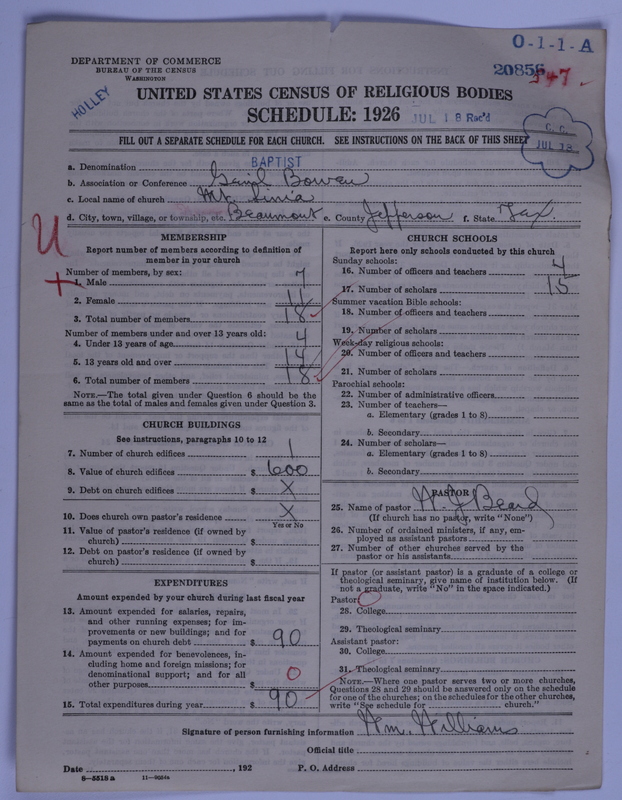 O-1-1-A
DEPARTMENT OF COMMERCE
BUREAU OF THE CENSUS
WASHINGTON
20855
HOLLEY
UNITED STATES CENSUS OF RELIGIOUS BODIES
SCHEDULE: 1926
JUL 18 Rec'd
FILL OUT A SEPARATE SCHEDULE FOR EACH CHURCH. SEE INSTRUCTIONS ON THE BACK OF THIS SHEET
C. C.
JUL 13
a. Denomination BAPTIST
b. Association or Conference Bowen
c. Local name of church Mt. Sinia
d. City, town, village, or township, etc. Beaumont e. County Jefferson f. State Tex.
U
MEMBERSHIP
Report number of members according to definition of member in your church
Number of members, by sex:
1. Male 7
2. Female 11
3. Total number of members 18
Number of members under and over 13 years old:
4. Under 13 years of age 4
5. 13 years old and over 14
6. Total number of members 18
NOTE.—The total given under Question 6 should be the same as the total of males and females given under Question 3.
CHURCH BUILDINGS
See instructions, paragraphs 10 to 12
7. Number of church edifices 1
8. Value of church edifices $ 600
9. Debt on church edifices $ X
10. Does church own pastor's residence X
Yes or No
11. Value of pastor's residence (if owned by church) $
12. Debt on pastor's residence (if owned by church) $
EXPENDITURES
Amount expended by your church during last fiscal year
13. Amount expended for salaries, repairs, and other running expenses; for improvements or new buildings; and for payments on church debt $ 90
14. Amount expended for benevolences, including home and foreign missions; for denominational support; and for all other purposes $ 0
15. Total expenditures during year $ 90
CHURCH SCHOOLS
Report here only schools conducted by this church
Sunday schools:
16. Number of officers and teachers 4
17. Number of scholars 15
Summer vacation Bible schools:
18. Number of officers and teachers
19. Number of scholars
Week-day religious schools:
20. Number of officers and teachers
21. Number of scholars
Parochial schools:
22. Number of administrative officers
23. Number of teachers—
a. Elementary (grades 1 to 8)
b. Secondary
24. Number of scholars—
a. Elementary (grades 1 to 8)
b. Secondary
PASTOR
25. Name of pastor Beard
(If church has no pastor, write "None")
26. Number of ordained ministers, if any, employed as assistant pastors
27. Number of other churches served by the pastor or his assistants
If pastor (or assistant pastor) is a graduate of a college or theological seminary, give name of institution below. (If not a graduate, write "No" in the space indicated.)
Pastor: 0
28. College
29. Theological seminary
Assistant pastor:
30. College
31. Theological seminary
NOTE.—Where one pastor serves two or more churches, Questions 28 and 29 should be answered only on the schedule for one of the churches; on the schedules for the other churches, write "See schedule for church."
Signature of person furnishing information Wm. Williams
Official title
Date , 192 P. O. Address
8—5518 a